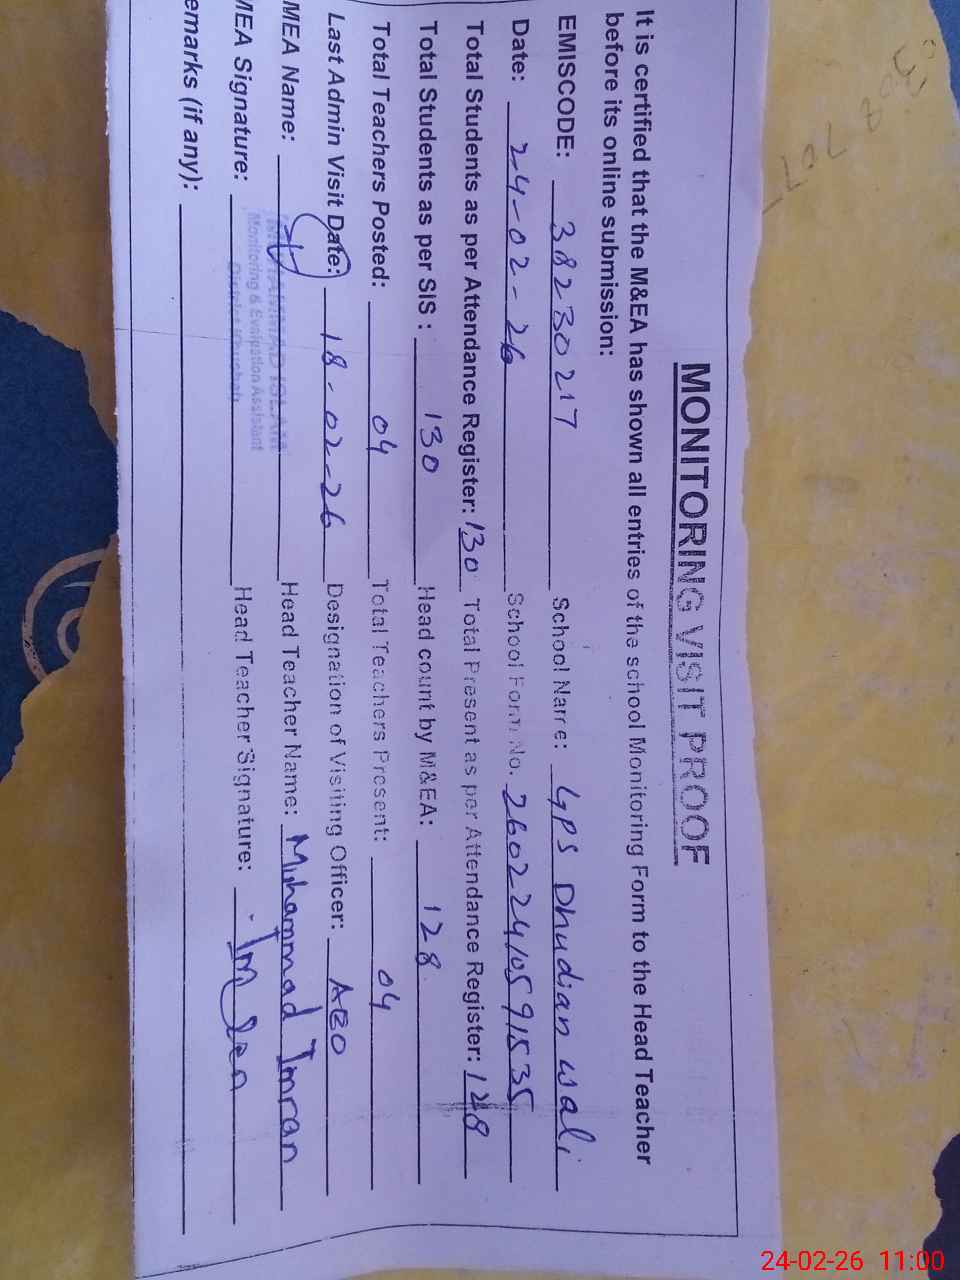 MONITORING VISIT PROOF
It is certified that the M&EA has shown all entries of the school Monitoring Form to the Head Teacher
before its online submission:
EMISCODE: 38230217 School Name: GPS Dhudian wali
Date: 24-02-26 School Form No. 26022410591535
Total Students as per Attendance Register: 130 Total Present as per Attendance Register: 128
Total Students as per SIS: 130 Head count by M&EA: 128
Total Teachers Posted: 04 Total Teachers Present: 04
Last Admin Visit Date: 18-02-26 Designation of Visiting Officer: AEO
MEA Name: MUHAMMAD ISLAM Head Teacher Name: Muhammad Imran
Monitoring & Evaluation Assistant
MEA Signature: District Khushab Head Teacher Signature:
emarks (if any):
24-02-26 11:00